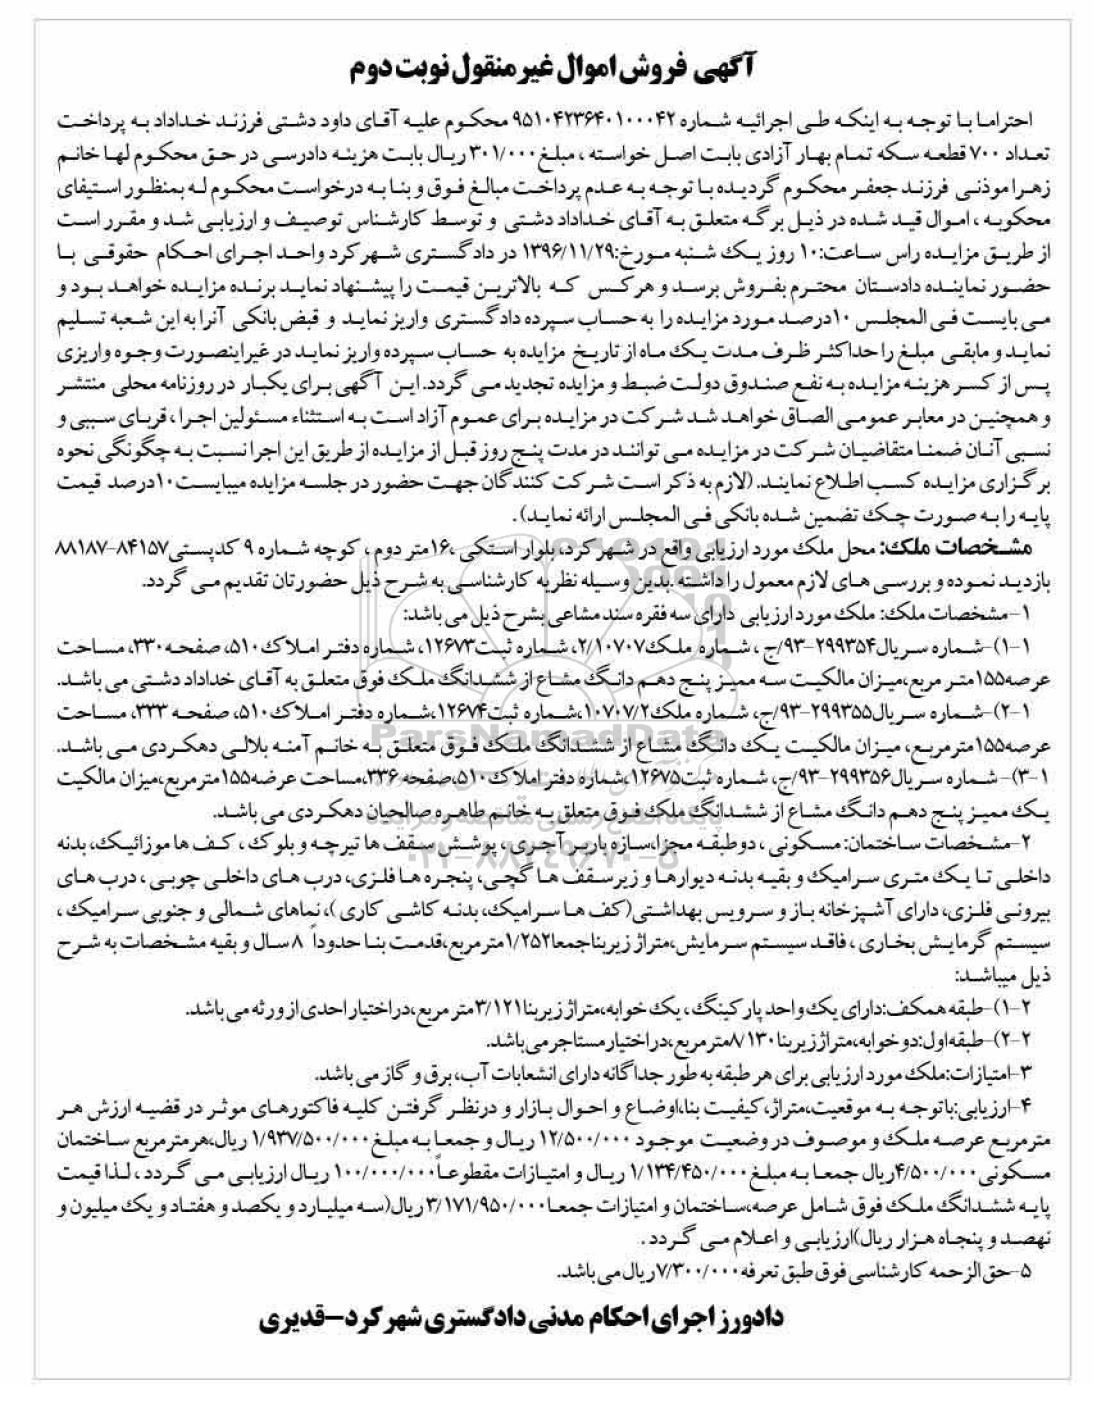 آگهی فروش اموال غیر منقول نوبت دوم
احتراما با توجه به اینکه طی اجرائیه شماره ۹۵۱۰۴۲۳۶۴۰۱۰۰۰۴۲ محکوم علیه آقای داود دشتی فرزند خداداد به پرداخت
تعداد ۷۰۰ قطعه سکه تمام بهار آزادی بابت اصل خواسته ، مبلغ ۳۰۱/۰۰۰ ریال بابت هزینه دادرسی در حق محکوم لها خانم
زهرا موذنی فرزند جعفر محکوم گردیده با توجه به عدم پرداخت مبالغ فوق و بنا به درخواست محکوم له بمنظور استیفای
محکوبه ، اموال قید شده در ذیل برگه متعلق به آقای خداداد دشتی و توسط کارشناس توصیف و ارزیابی شد و مقرر است
از طریق مزایده راس ساعت:۱۰ روز یک شنبه مورخ:۱۳۹۶/۱۱/۲۹ در دادگستری شهرکرد واحد اجرای احکام حقوقی با
حضور نماینده دادستان محترم بفروش برسد و هرکس که بالاترین قیمت را پیشنهاد نماید برنده مزایده خواهد بود و
می بایست فی المجلس ۱۰درصد مورد مزایده را به حساب سپرده دادگستری واریز نماید و قبض بانکی آنرا به این شعبه تسلیم
نماید و مابقی مبلغ را حداکثر ظرف مدت یک ماه از تاریخ مزایده به حساب سپرده واریز نماید در غیر اینصورت وجوه واریزی
پس از کسر هزینه مزایده به نفع صندوق دولت ضبط و مزایده تجدید می گردد. این آگهی برای یکبار در روزنامه محلی منتشر
و همچنین در معابر عمومی الصاق خواهد شد شرکت در مزایده برای عموم آزاد است به استثناء مسئولین اجرا ، قربای سببی و
نسبی آنان ضمنا متقاضیان شرکت در مزایده می توانند در مدت پنج روز قبل از مزایده از طریق این اجرا نسبت به چگونگی نحوه
برگزاری مزایده کسب اطلاع نمایند. (لازم به ذکر است شرکت کنندگان جهت حضور در جلسه مزایده میبایست ۱۰درصد قیمت
پایه را به صورت چک تضمین شده بانکی فی المجلس ارائه نماید) .
مشخصات ملک: محل ملک مورد ارزیابی واقع در شهرکرد، بلوار استکی ،۱۶متر دوم ، کوچه شماره ۹ کدپستی ۸۴۱۵۷-۸۸۱۸۷
بازدید نموده و بررسی های لازم معمول را داشته .بدین وسیله نظریه کارشناسی به شرح ذیل حضورتان تقدیم می گردد.
۱-مشخصات ملک: ملک مورد ارزیابی دارای سه فقره سند مشاعی بشرح ذیل می باشد:
۱-۱)-شماره سریال۲۹۹۳۵۴-۹۳/ج ، شماره ملک۲/۱۰۷۰۷، شماره ثبت۱۲۶۷۳، شماره دفتر املاک۵۱۰، صفحه۳۳۰، مساحت
عرصه۱۵۵متر مربع،میزان مالکیت سه ممیز پنج دهم دانگ مشاع از ششدانگ ملک فوق متعلق به آقای خداداد دشتی می باشد.
۲-۱)-شماره سریال۲۹۹۳۵۵-۹۳/ج، شماره ملک۱۰۷۰۷/۲،شماره ثبت۱۲۶۷۴،شماره دفتر املاک۵۱۰، صفحه ۳۳۳، مساحت
عرصه۱۵۵مترمربع، میزان مالکیت یک دانگ مشاع از ششدانگ ملک فوق متعلق به خانم آمنه بلالی دهکردی می باشد.
۳-۱)- شماره سریال۲۹۹۳۵۶-۹۳/ج، شماره ثبت۱۲۶۷۵،شماره دفتر املاک۵۱۰،صفحه ۳۳۶،مساحت عرضه۱۵۵متر مربع،میزان مالکیت
یک ممیز پنج دهم دانگ مشاع از ششدانگ ملک فوق متعلق به خانم طاهره صالحیان دهکردی می باشد.
۲-مشخصات ساختمان: مسکونی ، دوطبقه مجزا،سازه باربر آجری ، پوشش سقف ها تیرچه و بلوک ، کف ها موزائیک، بدنه
داخلی تا یک متری سرامیک و بقیه بدنه دیوارها و زیرسقف ها گچی، پنجره ها فلزی، درب های داخلی چوبی ، درب های
بیرونی فلزی، دارای آشپزخانه باز و سرویس بهداشتی(کف ها سرامیک، بدنه کاشی کاری )، نماهای شمالی و جنوبی سرامیک ،
سیستم گرمایش بخاری ، فاقد سیستم سرمایش،متراژ زیربناجمعا۱/۲۵۲متر مربع،قدمت بنا حدوداً ۸ سال و بقیه مشخصات به شرح
ذیل میباشد:
۱-۲)-طبقه همکف:دارای یک واحد پارکینگ ، یک خوابه،متراژ زیربنا۳/۱۲۱متر مربع،دراختیار احدی از ورثه می باشد.
۲-۲)-طبقه اول:دو خوابه،متراژ زیربنا ۸/۱۳۰مترمربع،دراختیار مستاجر می باشد.
۳-امتیازات:ملک مورد ارزیابی برای هر طبقه به طور جداگانه دارای انشعابات آب، برق و گاز می باشد.
۴-ارزیابی:باتوجه به موقعیت،متراژ،کیفیت بنا،اوضاع و احوال بازار و درنظر گرفتن کلیه فاکتورهای موثر در قضیه ارزش هر
مترمربع عرصه ملک و موصوف در وضعیت موجود ۱۲/۵۰۰/۰۰۰ ریال و جمعا به مبلغ ۱/۹۳۷/۵۰۰/۰۰۰ ریال،هرمترمربع ساختمان
مسکونی ۴/۵۰۰/۰۰۰ریال جمعا به مبلغ ۱/۱۳۴/۴۵۰/۰۰۰ ریال و امتیازات مقطوعاً ۱۰۰/۰۰۰/۰۰۰ ریال ارزیابی می گردد ، لذا قیمت
پایه ششدانگ ملک فوق شامل عرصه،ساختمان و امتیازات جمعا۳/۱۷۱/۹۵۰/۰۰۰ ریال(سه میلیارد و یکصد و هفتاد و یک میلیون و
نهصد و پنجاه هزار ریال)ارزیابی و اعلام می گردد .
۵-حق الزحمه کارشناسی فوق طبق تعرفه۷/۳۰۰/۰۰۰ریال می باشد.
دادورز اجرای احکام مدنی دادگستری شهرکرد-قدیری
ParsNamadData
پایگاه اطلاع رسانی مناقصه و مزایده
۰۲۱-۸۸۳۴۹۶۷۰-۵